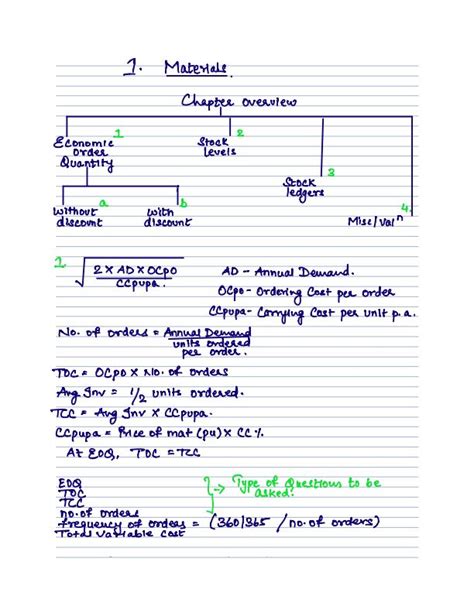 1. Materials.
Chapter overview
1
Economic
order
Quantity
2
Stock
levels
3
Stock
ledgers
4
Misc/Valⁿ
a
without
discount
b
with
discount
1 √ 2 X AD X OCpo / CCpupa.
AD - Annual Demand.
OCpo - Ordering Cost per order
CCpupa - Carrying Cost per unit p.a.
No. of orders = Annual Demand / units ordered per order.
TOC = OCpo X No. of orders
Avg Inv = 1/2 units ordered.
TCC = Avg Inv X CCpupa.
CCpupa = Price of mat (pu) X CC %.
At EOQ, TOC = TCC
EOQ
TOC
TCC
no. of orders
} → Type of Questions to be
asked.
frequency of orders = (360/365 / no. of orders)
Total variable cost